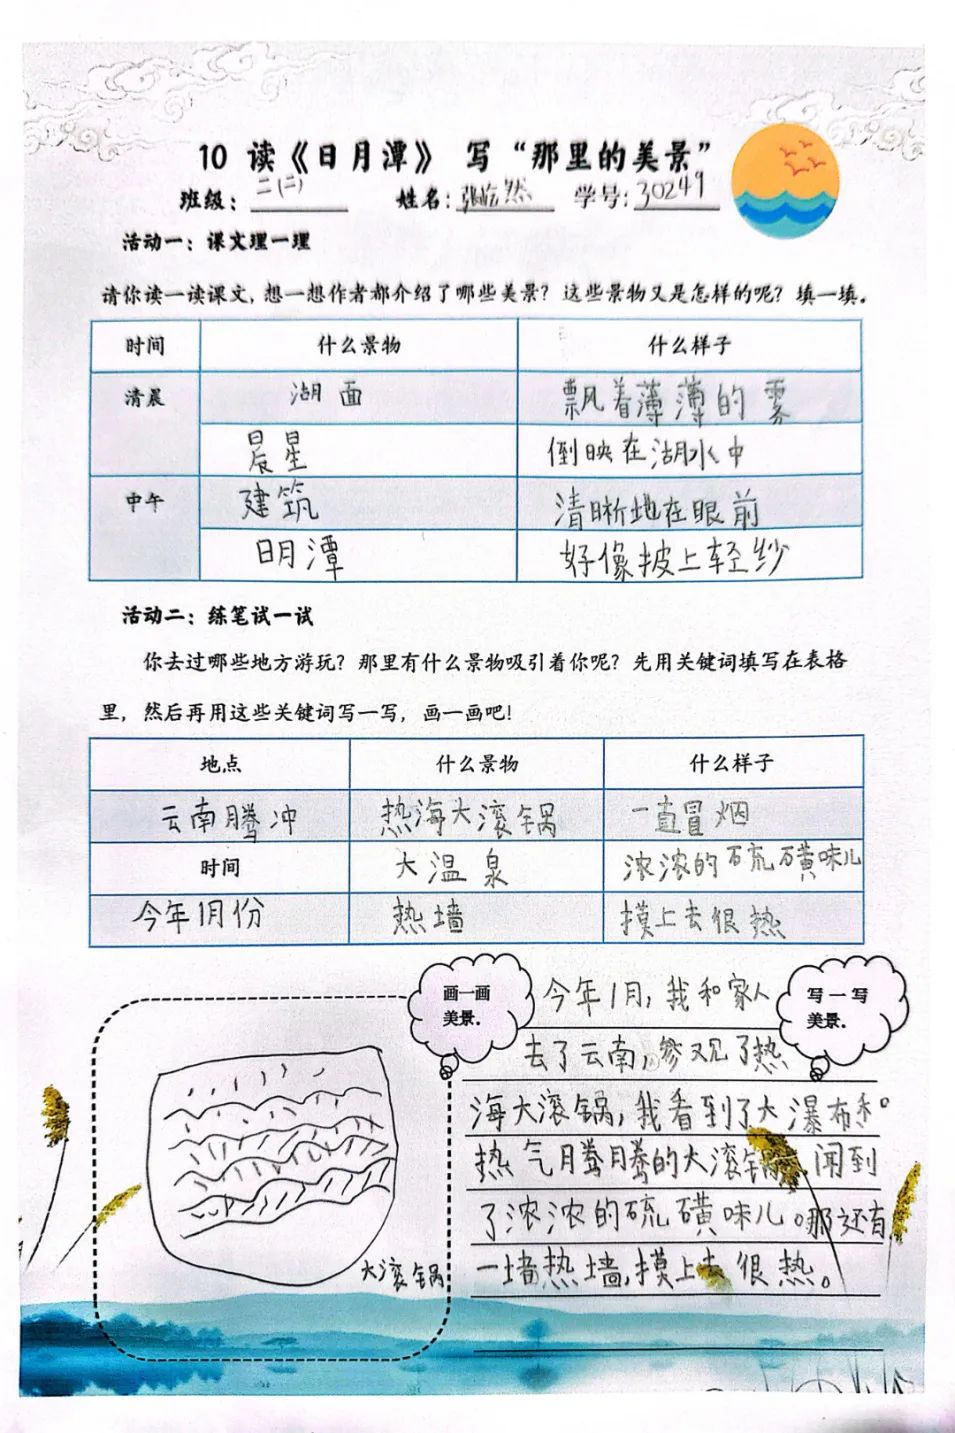 10 读《日月潭》 写“那里的美景”
班级：二(二) 姓名：张 然 学号：30249
活动一：课文理一理
请你读一读课文，想一想作者都介绍了哪些美景？这些景物又是怎样的呢？填一填。
时间 什么景物 什么样子
清晨 湖面 飘着薄薄的雾
晨星 倒映在湖水中
中午 建筑 清晰地在眼前
日月潭 好像披上轻纱
活动二：练笔试一试
你去过哪些地方游玩？那里有什么景物吸引着你呢？先用关键词填写在表格
里，然后再用这些关键词写一写，画一画吧！
地点 什么景物 什么样子
云南腾冲 热海大滚锅 一直冒烟
时间 大温泉 浓浓的硫磺味儿
今年1月份 热墙 摸上去很热
画一画
美景.
写一写
美景.
今年1月，我和家人
去了云南，参观了热
海大滚锅，我看到了大瀑布和
热气腾腾的大滚锅，闻到
了浓浓的硫磺味儿。那还有
一墙热墙，摸上去很热。
大滚锅